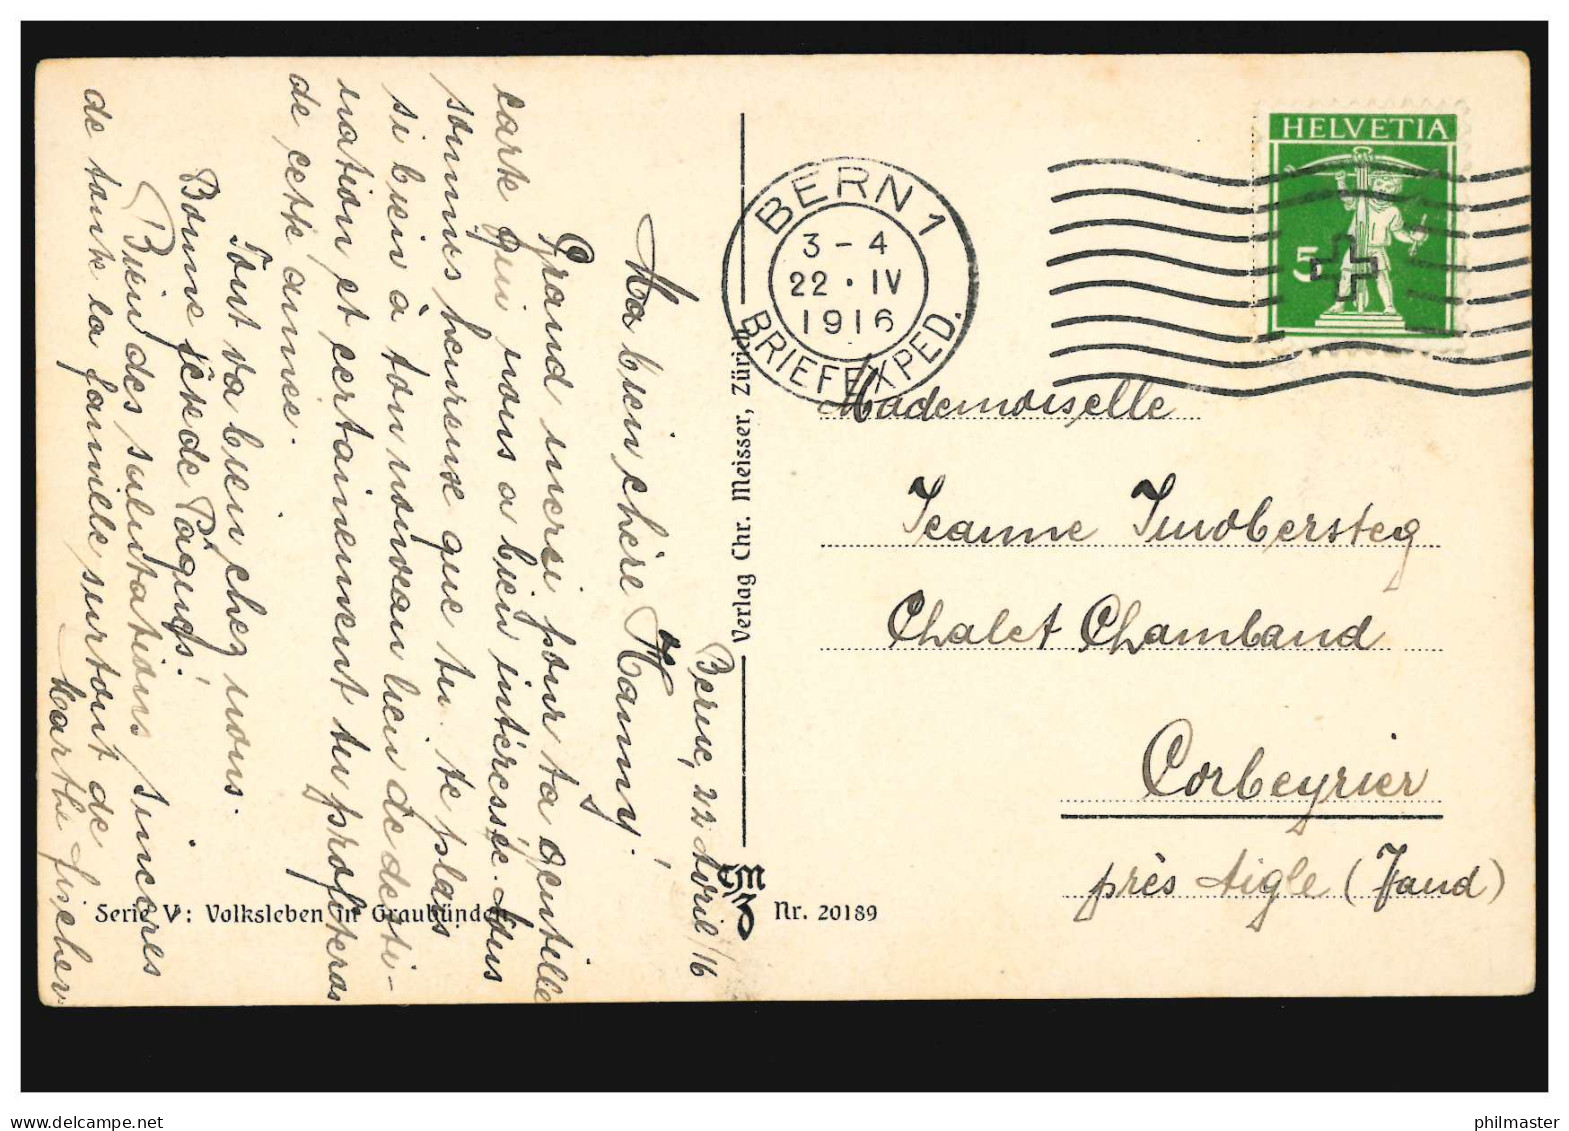 Berne, 22 Avril /16
Ma bien chère Nanny!
Grand merci pour ta gentille
carte qui nous a bien intéressée. Nous
sommes heureuse que tu te plais
si bien à ton nouveau lieu de desti-
nation et certainement tu profiteras
de cette année.
Tout va bien chez nous.
Bonne fête de Pâques!
Bien des salutations sincères
de toute la famille surtout de
Marthe Fischer
Serie V: Volksleben in Graubünden
Verlag Chr. Meisser, Zürich
CMZ
Nr. 20189
BERN 1
3-4
22.IV
1916
BRIEFEXPED.
HELVETIA
5
Mademoiselle
Jeanne Imobersteg
Chalet Chamband
Corbeyrier
près Aigle (Vaud)
delcampe.net
philmaster